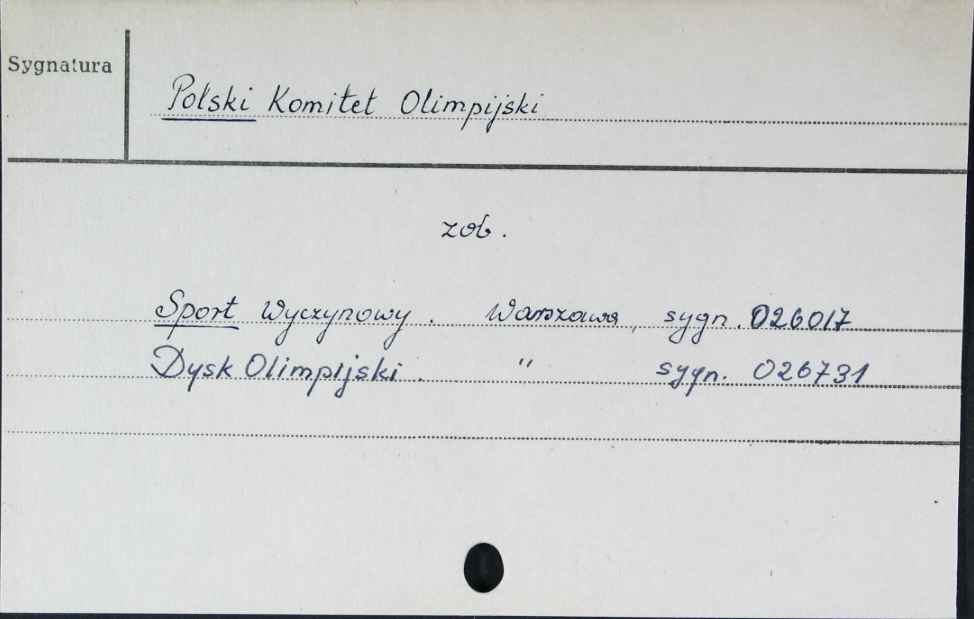 Sygnatura
Polski Komitet Olimpijski
zob.
Sport Wyczynowy. Warszawa, sygn. 026017
Dysk Olimpijski. " sygn. 026731